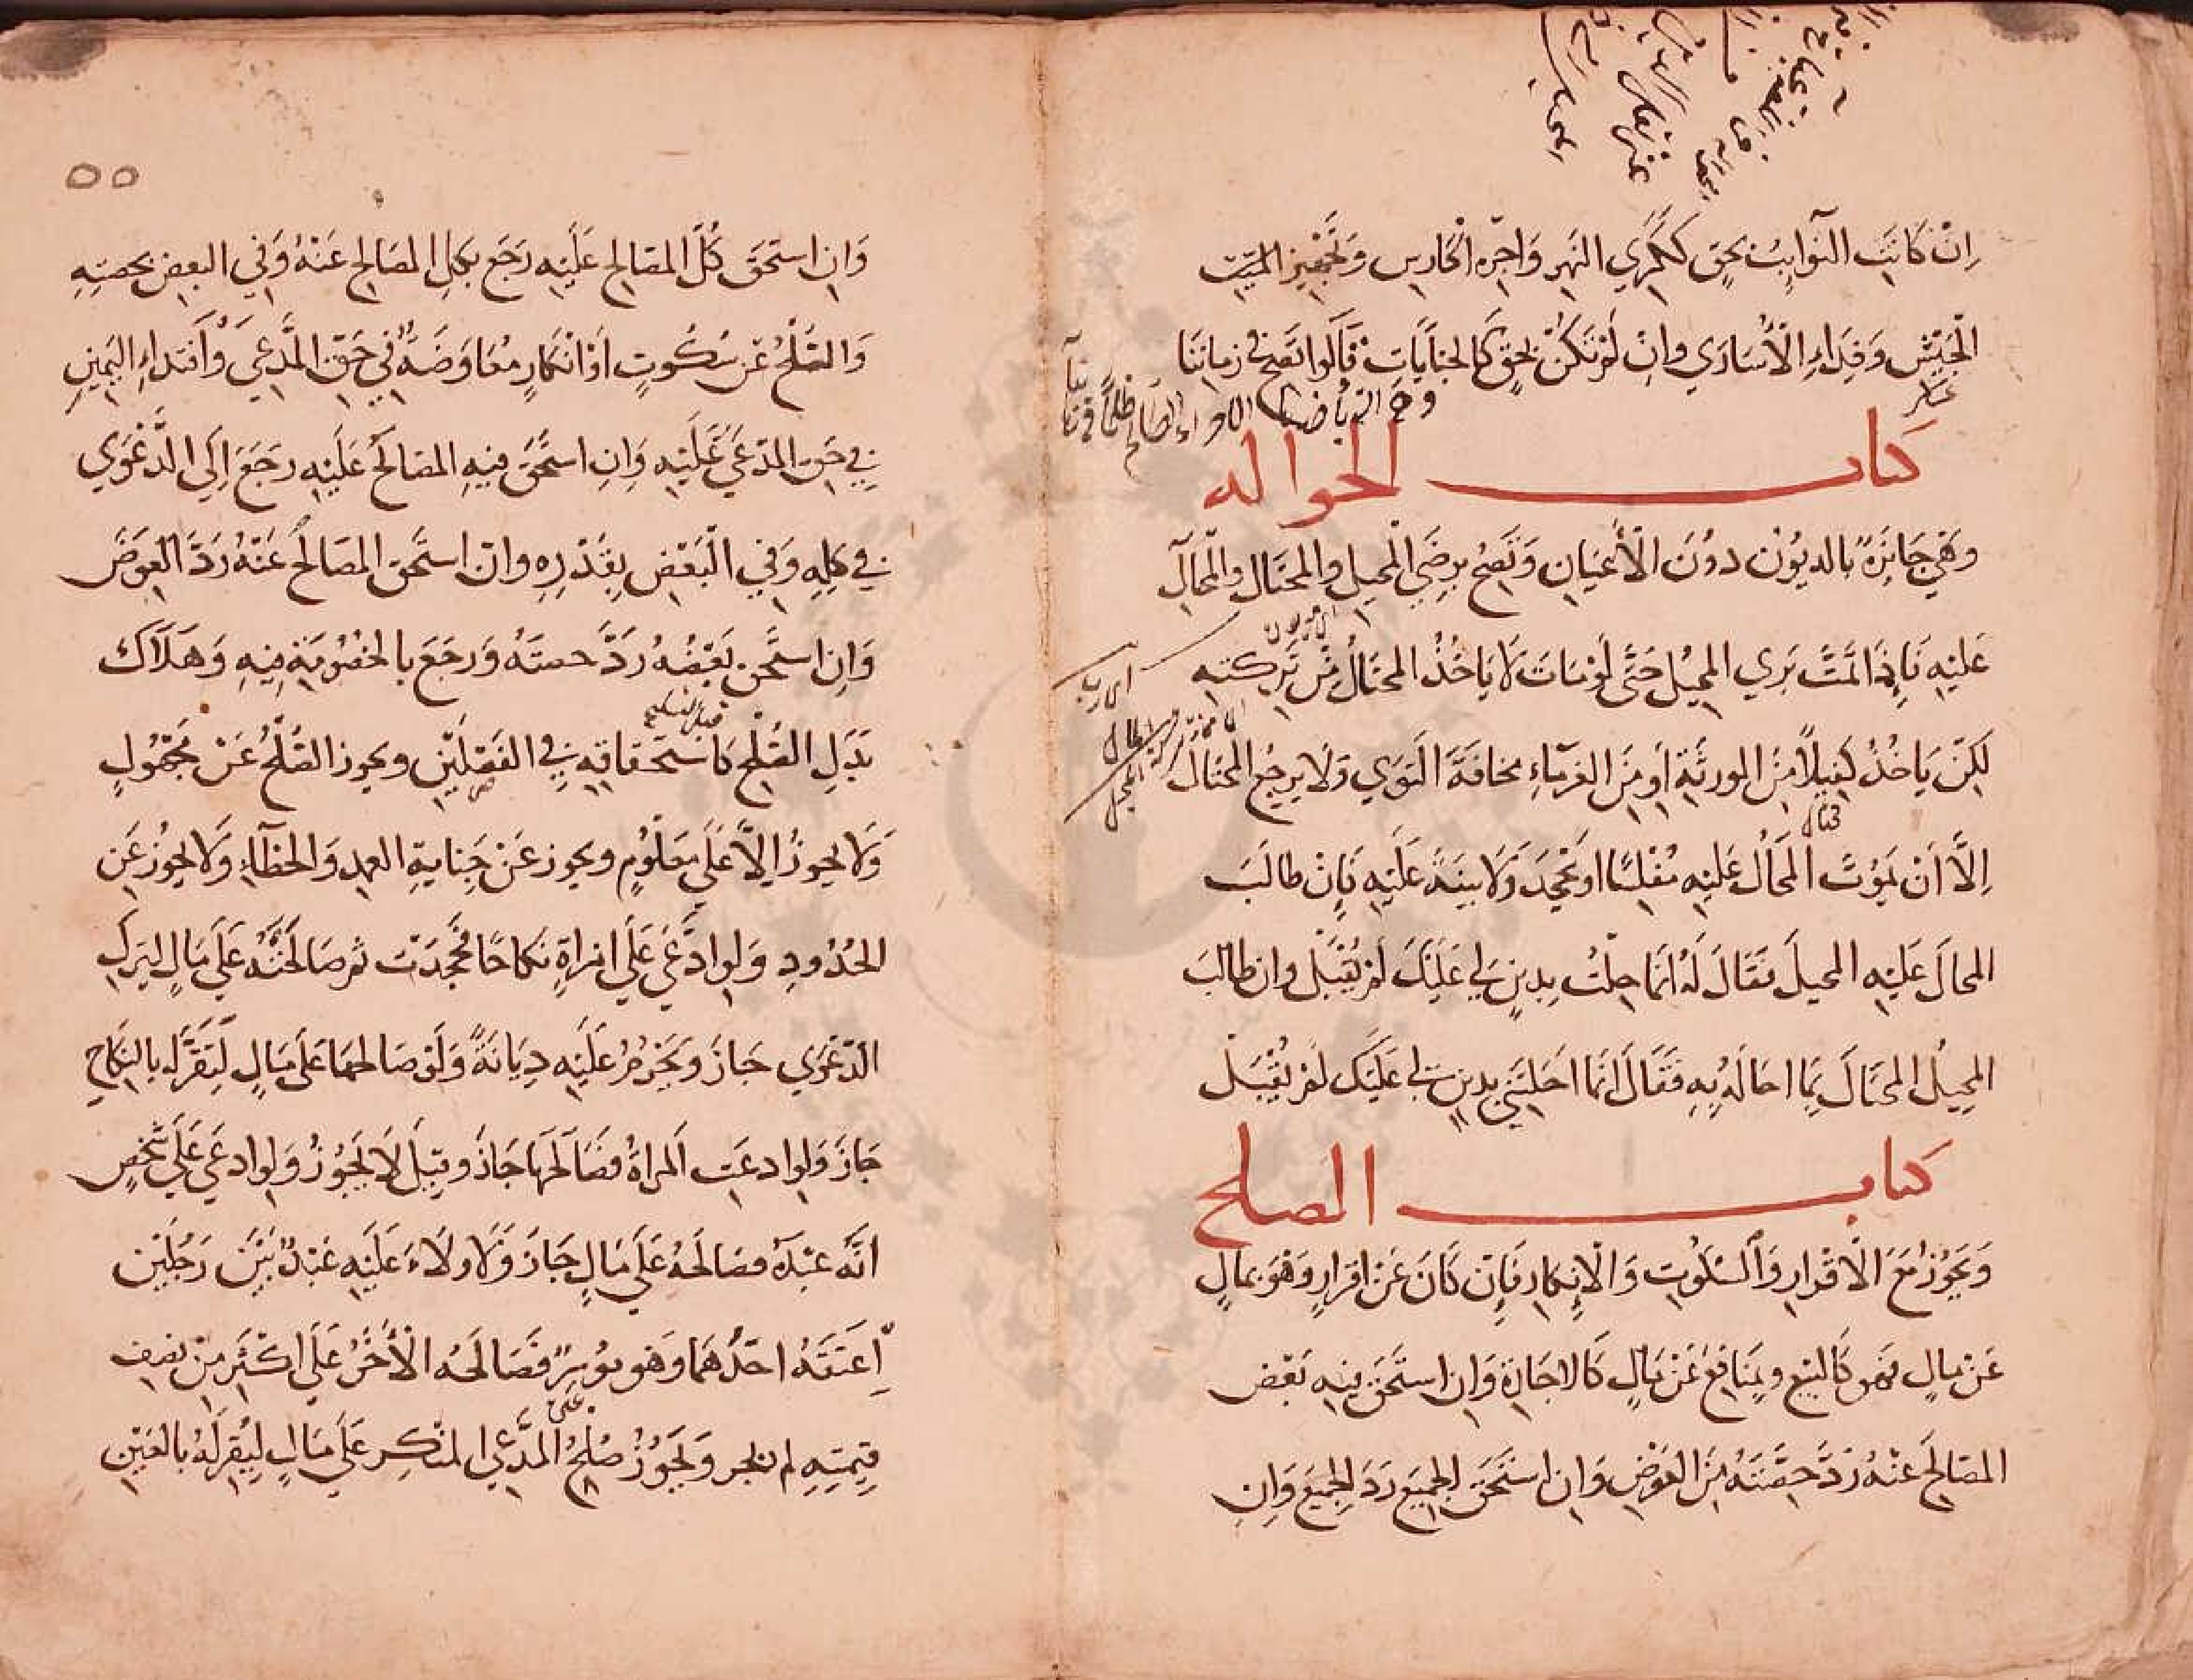 اِنْ كَانَتِ النَّوَايِبُ بحَقٍ ككَرْيِ النَهرِ وَاجرَةِ الحَارِسِ وَتَجهِيزِ
الجَيْشِ وَفِدَاءِ الْأسَارَي وَانْ لَمْ تَكُنْ بحَقٍ كَالجبَايَاتِ قَالُوا تَصِحُّ فى زمَانِنَا
عسكر
كتاب الحواله
وَهْيَ جَايزَةٌ بالديُونْ دوُنَ الْأعْيَانِ وَتَصِحُ برِضَي الْمحيلِ والمحتَالِ والمُحَالِ
عَليْهِ فَاِذَا تمَّتْ بَرِي المحِيْل حَتَّى لَوْ مَاتَ لَا يَاخُذُ المحتَالُ مِنْ تَرِكتهِ
لَكِنْ يَاخُذُ كَفِيلًا مِنَ الورثَةِ أو مِنَ الغرمَاءِ مخَافَةَ التَوَي وَلَا يرجِعُ المحتَال
اِلَّا اَنْ يَمُوْتَ المحَالُ عَليْهِ مُفْلِسًا اَو يَجْحَدَ وَلَا بيِنَةَ عَلَيْهِ فَاِنْ طَالَبَ
المحَالَ عَليْهِ المحيلَ فَقَالَ لَهُ انَمَا احلْتُ بدينٍ لي عَلَيْكَ لَمْ يُقْبَلْ وان طالَبَ
المحِيلُ المحتَالَ بِمَا احَالَهُ بِهِ فَقَالَ انَمَا احَلْتَنِي بدينٍ لي عَلَيْكَ لَمْ يُقْبَلْ
كتاب الصلح
وَيَجُوْزُ مَعَ الْاقْرَارِ وَالسُّكُوتِ وَالْاِنكَارِ فَاِنْ كَانَ عَنْ اقرَارٍ وَهُوَ بمَالٍ
عَنْ مَالٍ فَهو كَالبَيْعِ وبمَنَافِعَ عَنْ مَالٍ كَالاجَارَةِ وَاِن استَحَقَ فيْهِ بَعْض
المصَالَحِ عَنْهُ رَدَّ حِصَّتَهُ مِنَ العِوَضِ وَاِنِ استَحَقَ الجمِيعَ رَدَ الجمِيعَ وَاِنِ
٥٥
وَاِنِ استَحَقَ كُلَّ المصَالحِ عَلَيْهِ رَجَع بكلِ المصَالحِ عَنْهُ وَفي البعضِ بحصتِهِ
وَالصُّلْحُ عَنْ سُكُوتٍ اَوْ انْكَارٍ مُعَاوَضَةٌ في حَقِ المدَّعِي وَافتدَاءِ اليَمِينِ
في حَقِ المدَّعَي عَلَيْهِ وَاِنِ استَحَقَ فيهِ المصَالَحُ عَلَيْهِ رجَعَ اِلَي الدَّعْوَي
في كلِهِ وَفي الْبَعْضِ بِقَدْرِهِ وانِ استَحَقَ المصَالَحُ عَنْهُ رَدَّ العِوَضَ
وَاِنِ استَحَقَ بَعْضُهُ رَدَّ حصتَهُ وَرَجَعَ بالخصُومَةِ فِيهِ وَهَلَاك
قبل التسليم
بَدَلِ الصُّلْحِ كَاستحقَاقِهِ في الفَصْلَيْنِ ويجوز الصُّلْحُ عَنْ مَجْهُولٍ
وَلَا يجوزُ اِلَّا عَلَى مَعْلُوُمٍ ويجوز عَنْ جِنَايةِ العمدِ وَالخطَاءِ وَلَا يجُوزُ عَن
الحُدُودِ وَلو ادَّعَي عَلَي امرَاةٍ نكَاحًا فَجحَدَتْ ثم صَالحَتْهُ عَلَى مَالٍ ليَترُكَ
الدَّعْوَي جَازَ وَيحْرُمُ عَلَيْهِ دِيَانَةً وَلَوْ صَالحهَا عَلَى مَالٍ لِتُقرَّ لَهُ بالنكَاحِ
جَازَ وَلَو ادعَتِ المراةُ فصَالحَهَا جَازَ وَقِيلَ لَا يَجُوْزُ وَلو ادعَي عَلَى شَخصٍ
انَّه عَبْدَهُ فصَالحَهُ عَلَى مَالٍ جَازَ وَلَا وَلَاءَ عَلَيْهِ عَبْدٌ بَيْنَ رَجُلَيْنِ
اَعتَقَهُ احَدُهُمَا وَهو مُوْسِرٌ فَصَالَحَهُ الْأخَرُ عَلَى اكثَرَ مِنْ نِصفِ
قِيمتِهِ لم يجز وَيَجُوْزُ صُلْحُ المدَّعِي المنكِرِ عَلَى مَالٍ لِيُقِرَّ لَهُ بالعَيْنِ